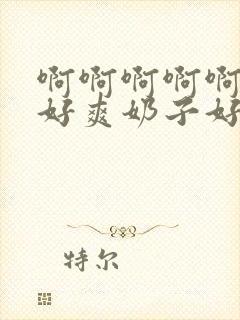 啊啊啊啊啊
好爽奶子好
特尔